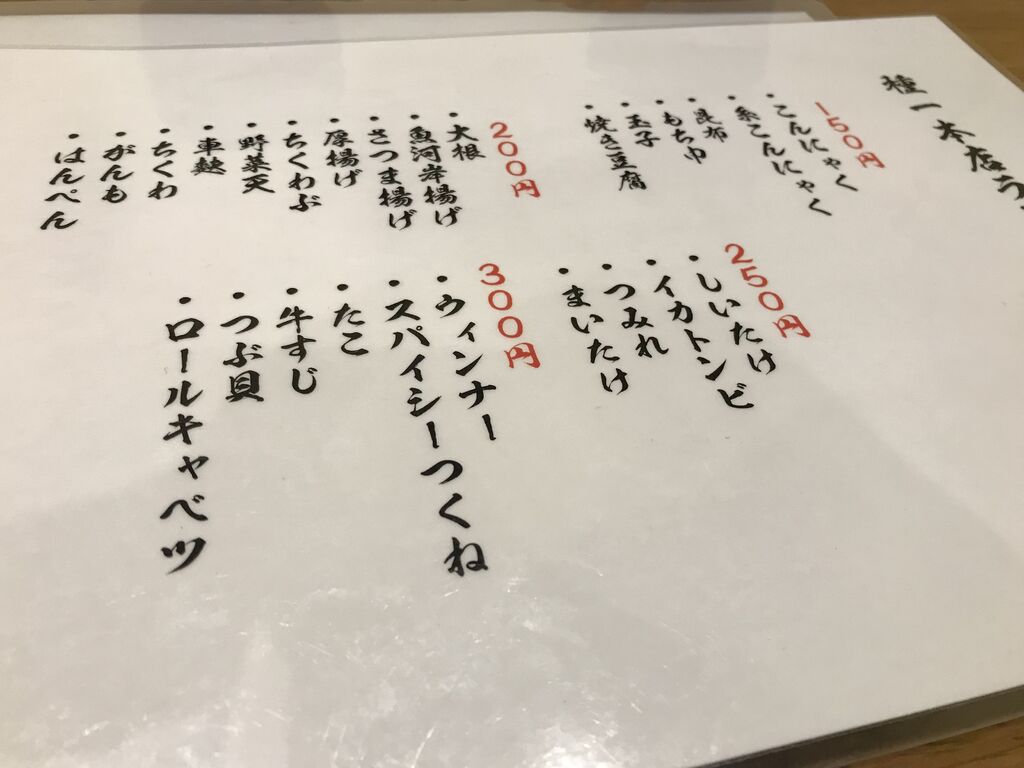 種一本店
150円
・こんにゃく
・糸こんにゃく
・昆布
・もち巾
・玉子
・焼き豆腐
200円
・大根
・魚河岸揚げ
・さつま揚げ
・厚揚げ
・ちくわぶ
・野菜天
・車麩
・ちくわ
・がんも
・はんぺん
250円
・しいたけ
・イカトンビ
・つみれ
・まいたけ
300円
・ウィンナー
・スパイシーつくね
・たこ
・牛すじ
・つぶ貝
・ロールキャベツ